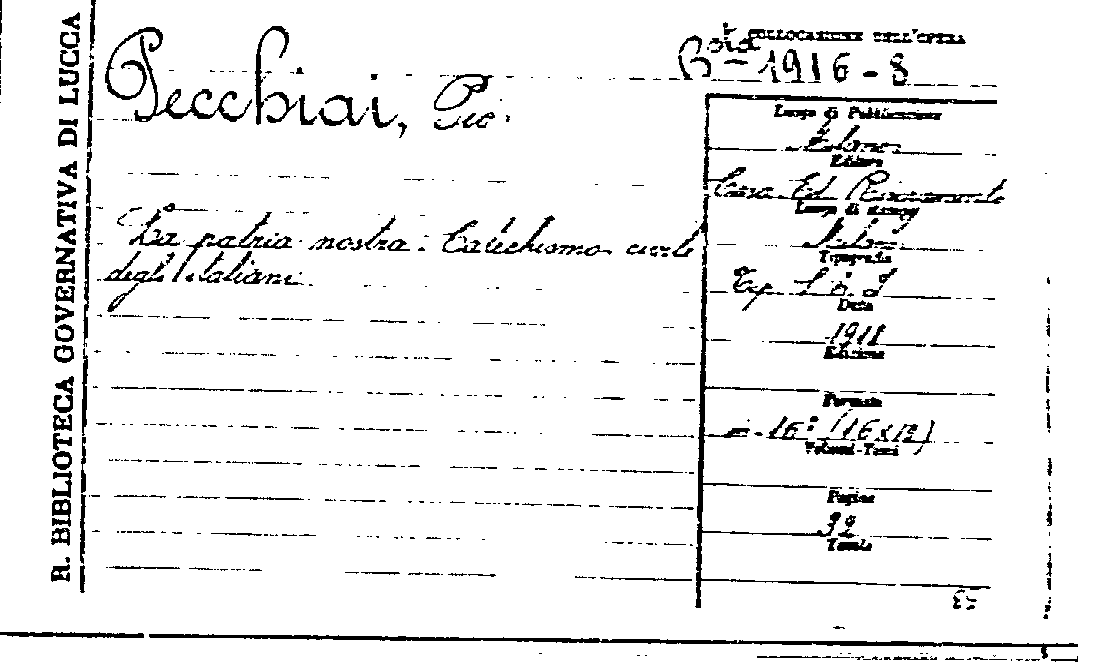 R. BIBLIOTECA GOVERNATIVA DI LUCCA
COLLOCAZIONE DELL'OPERA
1916-8
Pecchiai, Pio.
La patria nostra. Catechismo civile
degli Italiani.
Luogo di Pubblicazione
Milano
Editore
Casa Ed. Risorgimento
Luogo di stampa
Milano
Tipografia
Tip.
Data
1918
Edizione
Formato
in-16° (16x12)
Volumi-Tomi
Pagine
32
Tavole